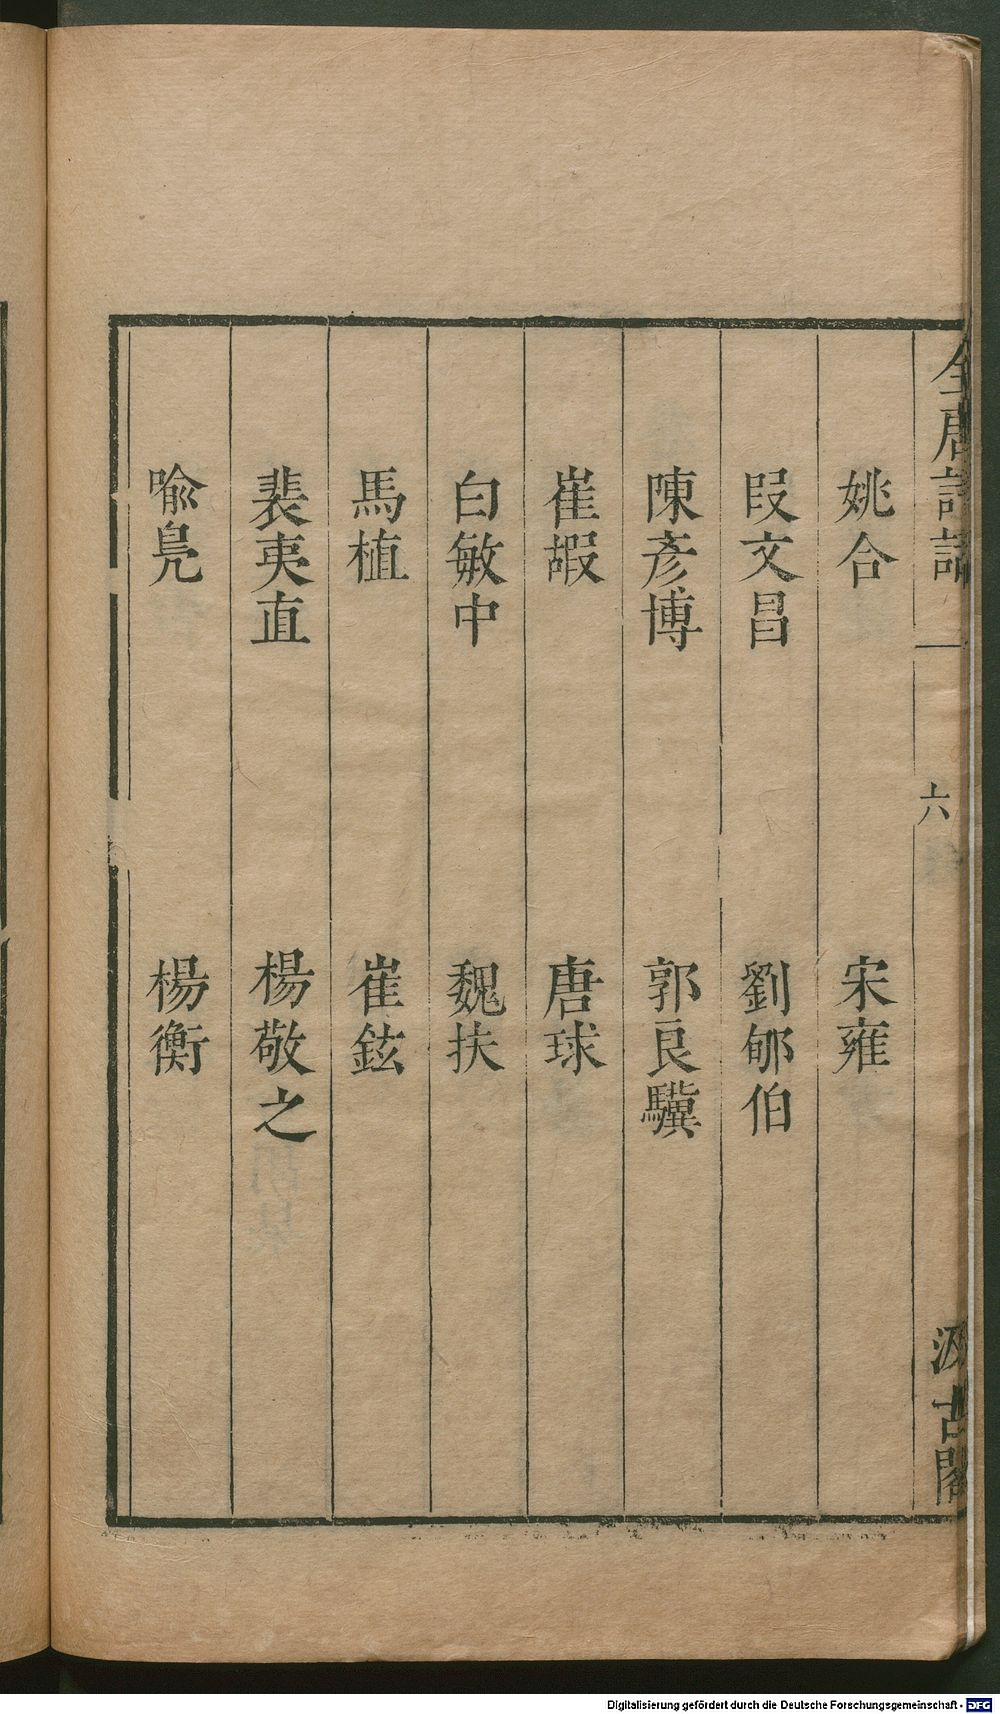 全唐詩話 一 六 汲古閣
姚合 宋雍
段文昌 劉郇伯
陳彥博 郭良驥
崔嘏 唐球
白敏中 魏扶
馬植 崔鉉
裴夷直 楊敬之
喻鳧 楊衡
Digitalisierung gefördert durch die Deutsche Forschungsgemeinschaft - DFG